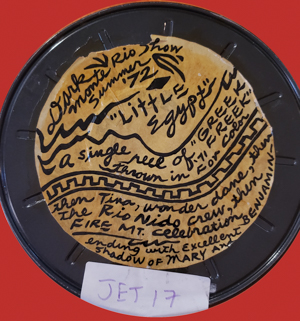 Dirk
Monte Rio Show
Summer '72
"LITTLE
Egypt"
"GREEK-
A single reel of "TI-FREEK"
thrown in FOR COLOR
then Tina, wonder dame, then
The Rio Nido Crew, then
FIRE MT. Celebration
ending with excellent
Shadow of MARY AND BENJAMIN.
JET 17